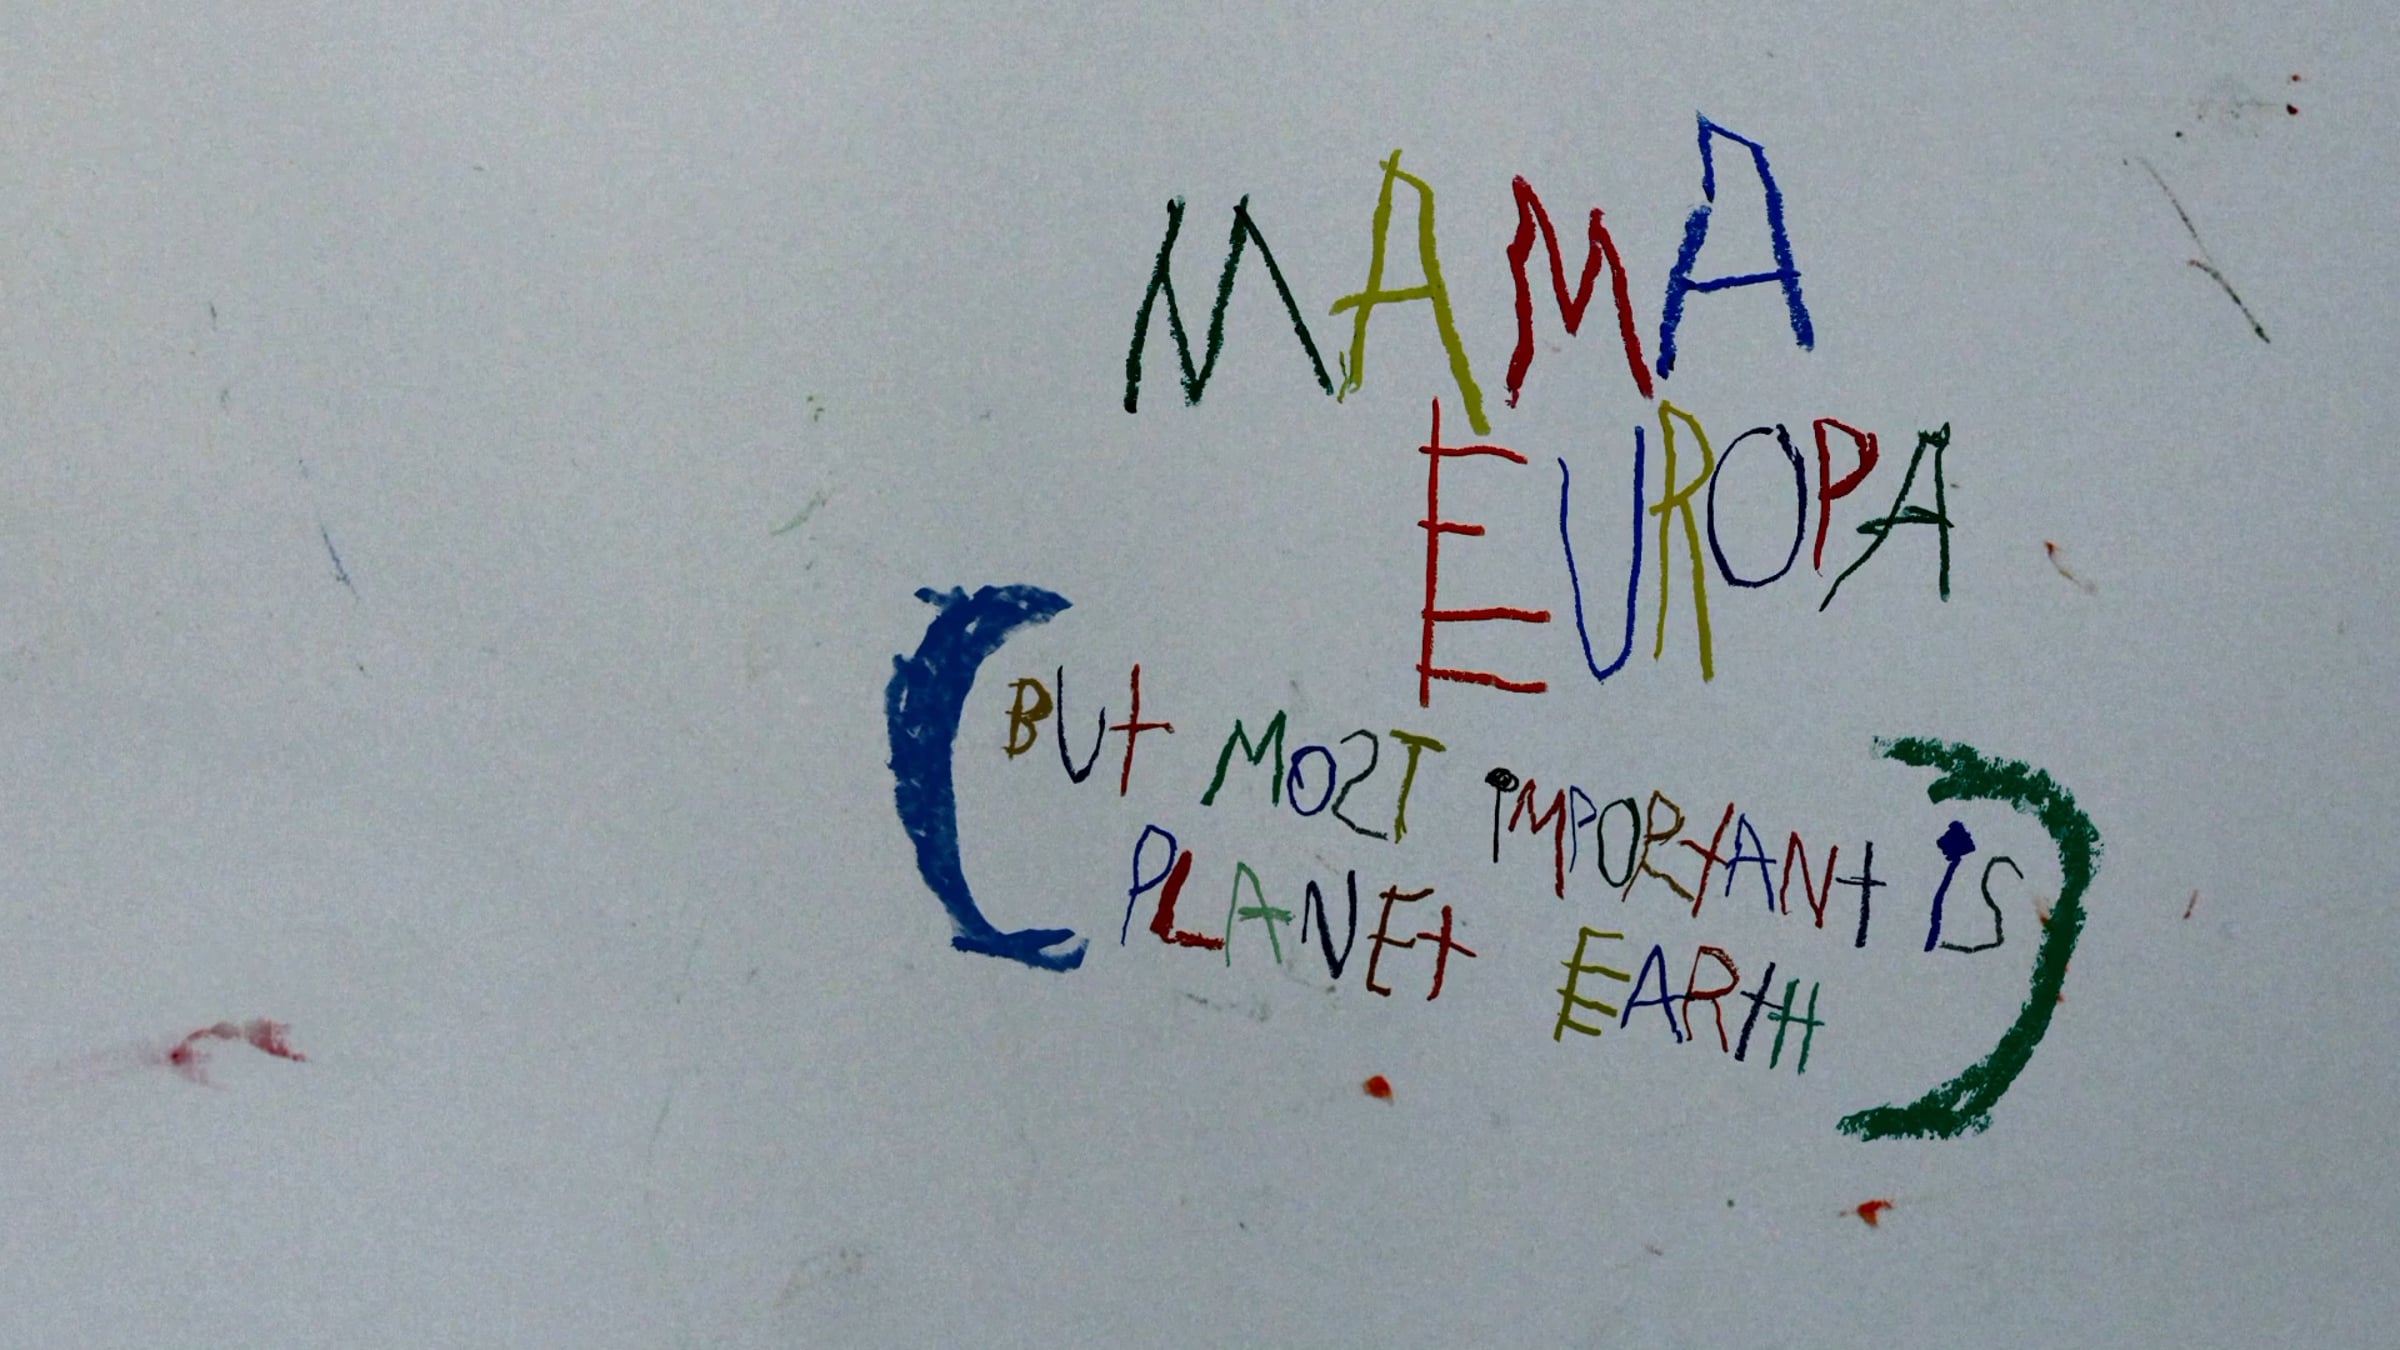 MAMA
EUROPA
(BUt MOST iMPORtANt iS
PLANEt EARtH)